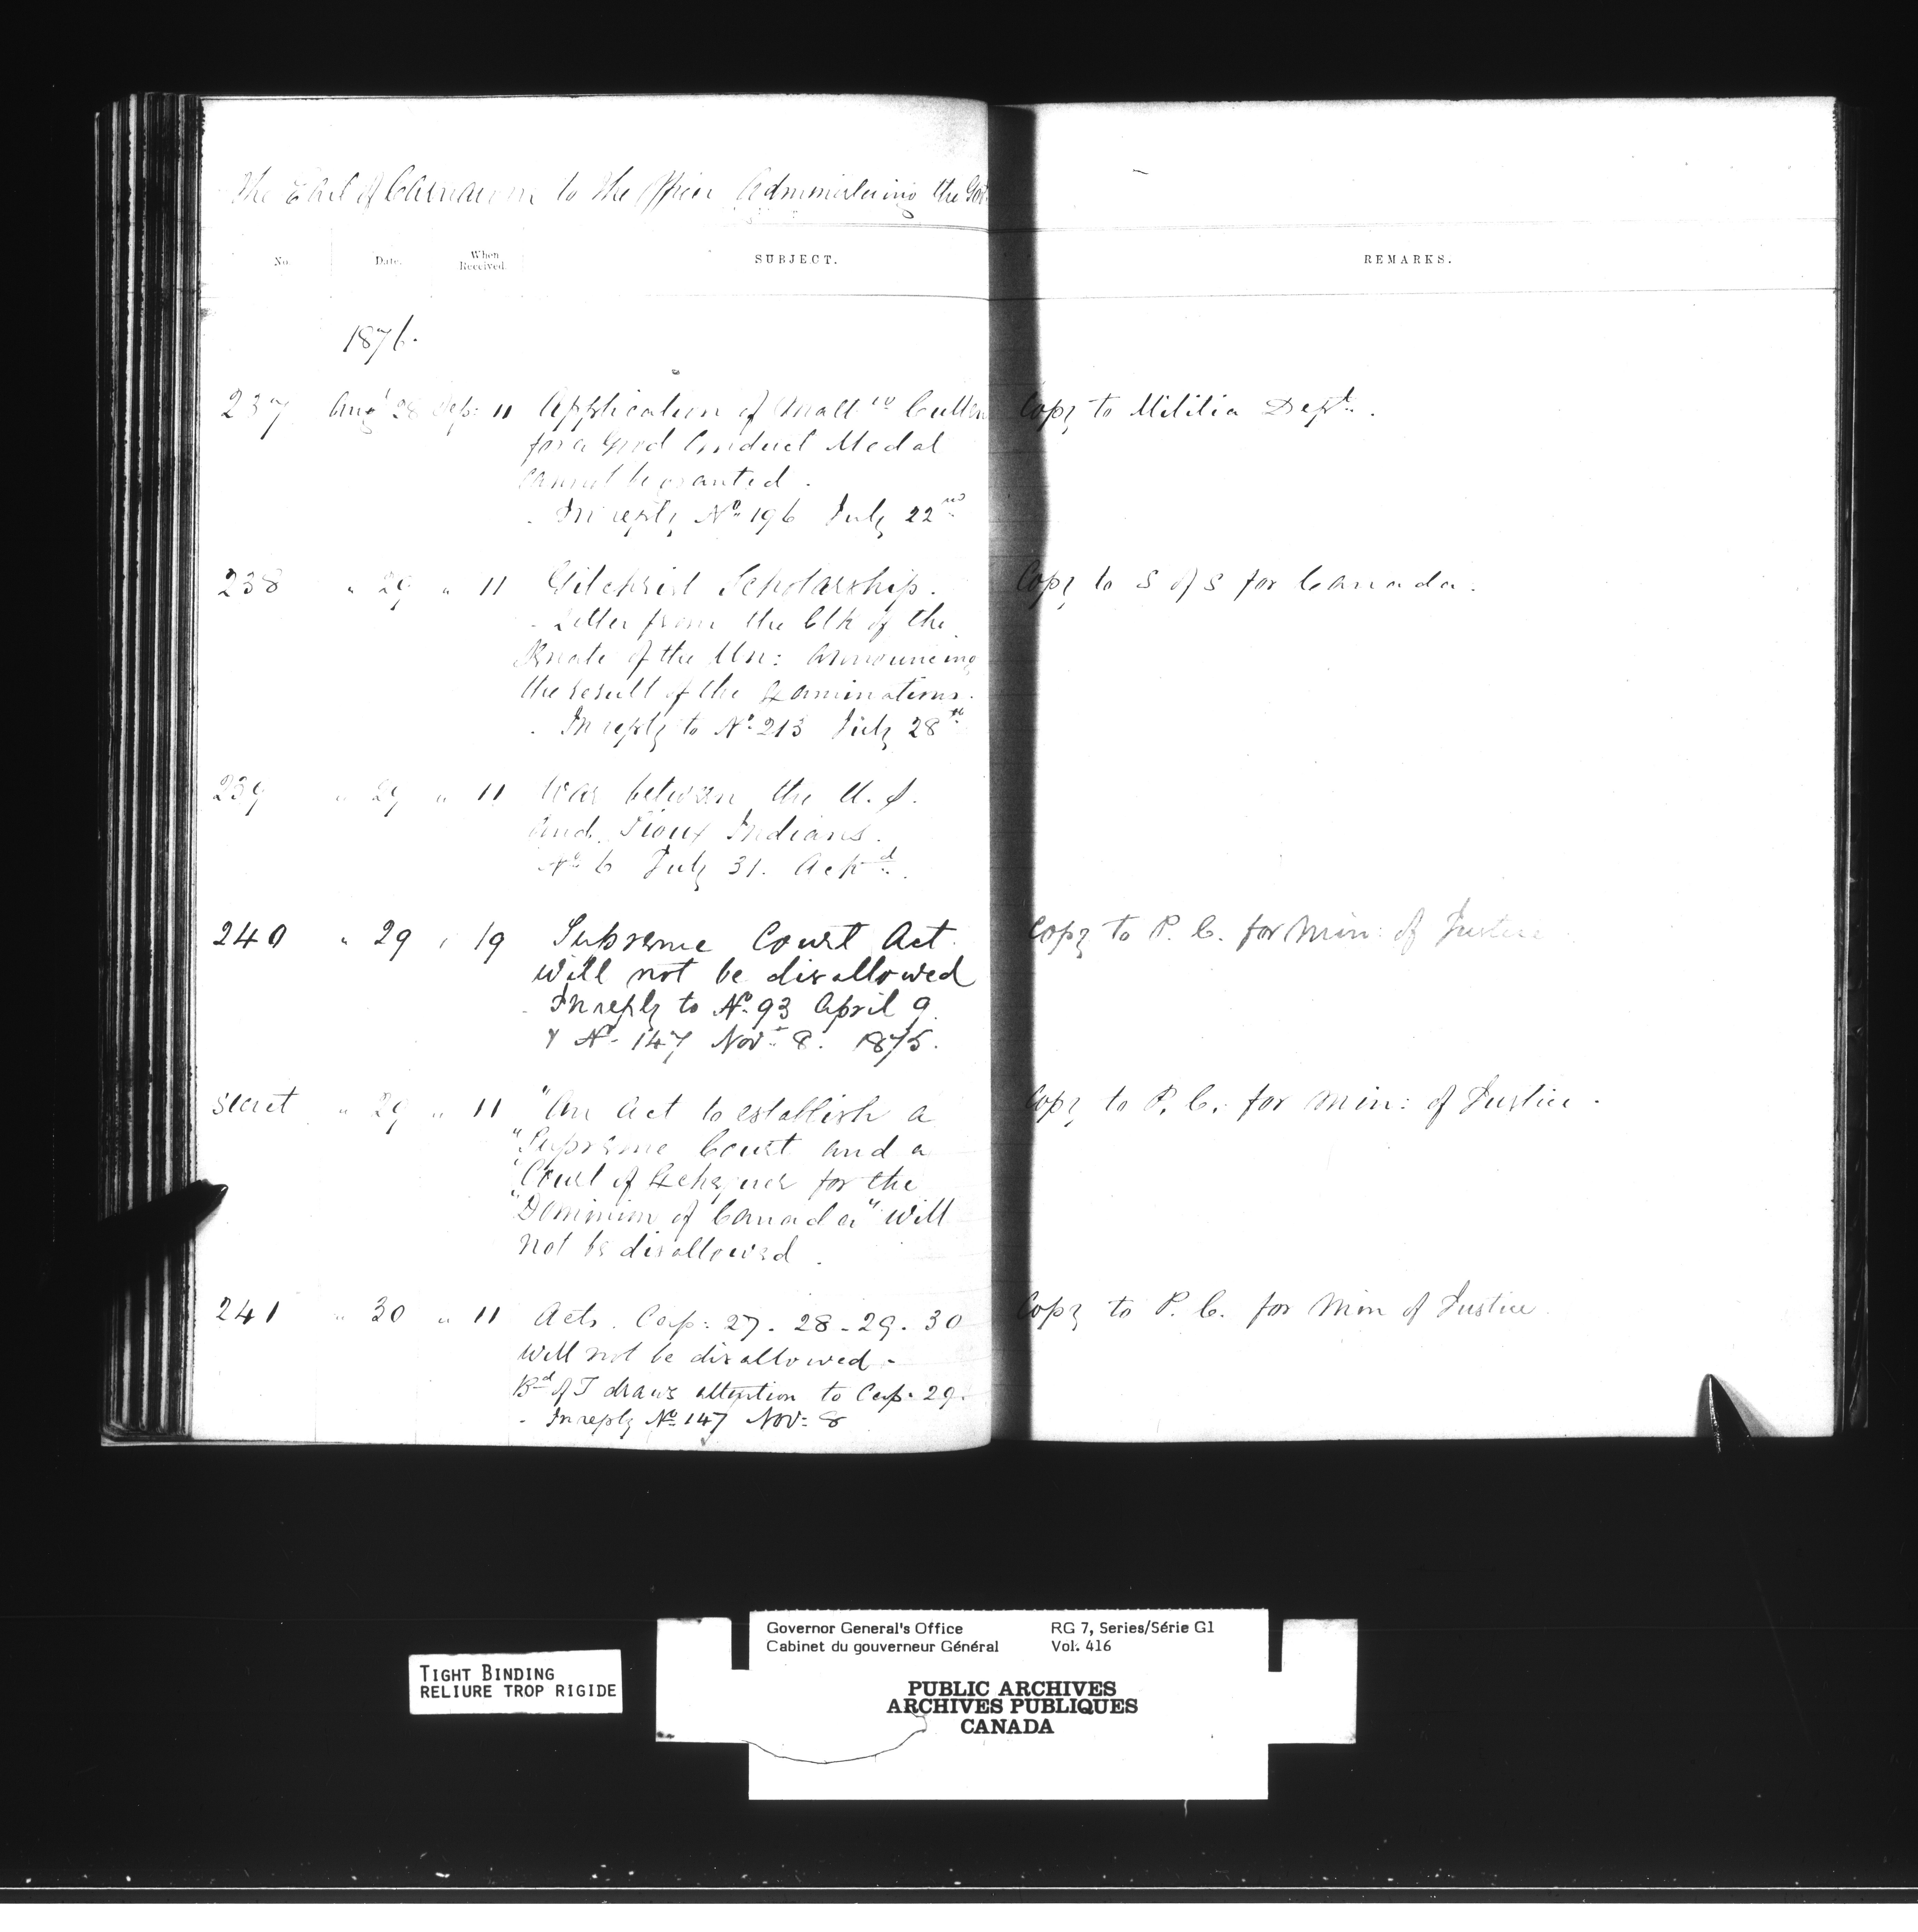 The Earl of Carnarvon to the Officer Administering the Gov.
No. Date. When Received. SUBJECT. REMARKS.
1876.
237 Augt 28 Sep: 11 Application of Matt: Cullen Copy to Militia Dept.
for a Good Conduct Medal
cannot be granted.
- In reply No 196 July 22nd
238 " 29 " 11 Gilchrist Scholarship. Copy to S of S for Canada.
- Letter from the Clk of the
Senate of the Un: announcing
the result of the Examinations.
- In reply to No 213 July 28th
239 " 29 " 11 War between the U.S.
and Sioux Indians.
No 6 July 31. Ackd.
240 " 29 " 19 Supreme Court Act Copy to P. C. for Min: of Justice
will not be disallowed
- In reply to No 93 April 9.
& No 147 Nov: 8. 1875.
Secret " 29 " 11 "An Act to establish a Copy to P. C. for Min: of Justice.
"Supreme Court and a
"Court of Exchequer for the
"Dominion of Canada" will
not be disallowed.
241 " 30 " 11 Acts. Cap: 27. 28. 29. 30 Copy to P. C. for Min of Justice.
will not be disallowed.
Bd of T draws attention to Cap. 29.
- In reply No 147 Nov: 8
TIGHT BINDING
RELIURE TROP RIGIDE
Governor General's Office RG 7, Series/Série G1
Cabinet du gouverneur Général Vol. 416
PUBLIC ARCHIVES
ARCHIVES PUBLIQUES
CANADA